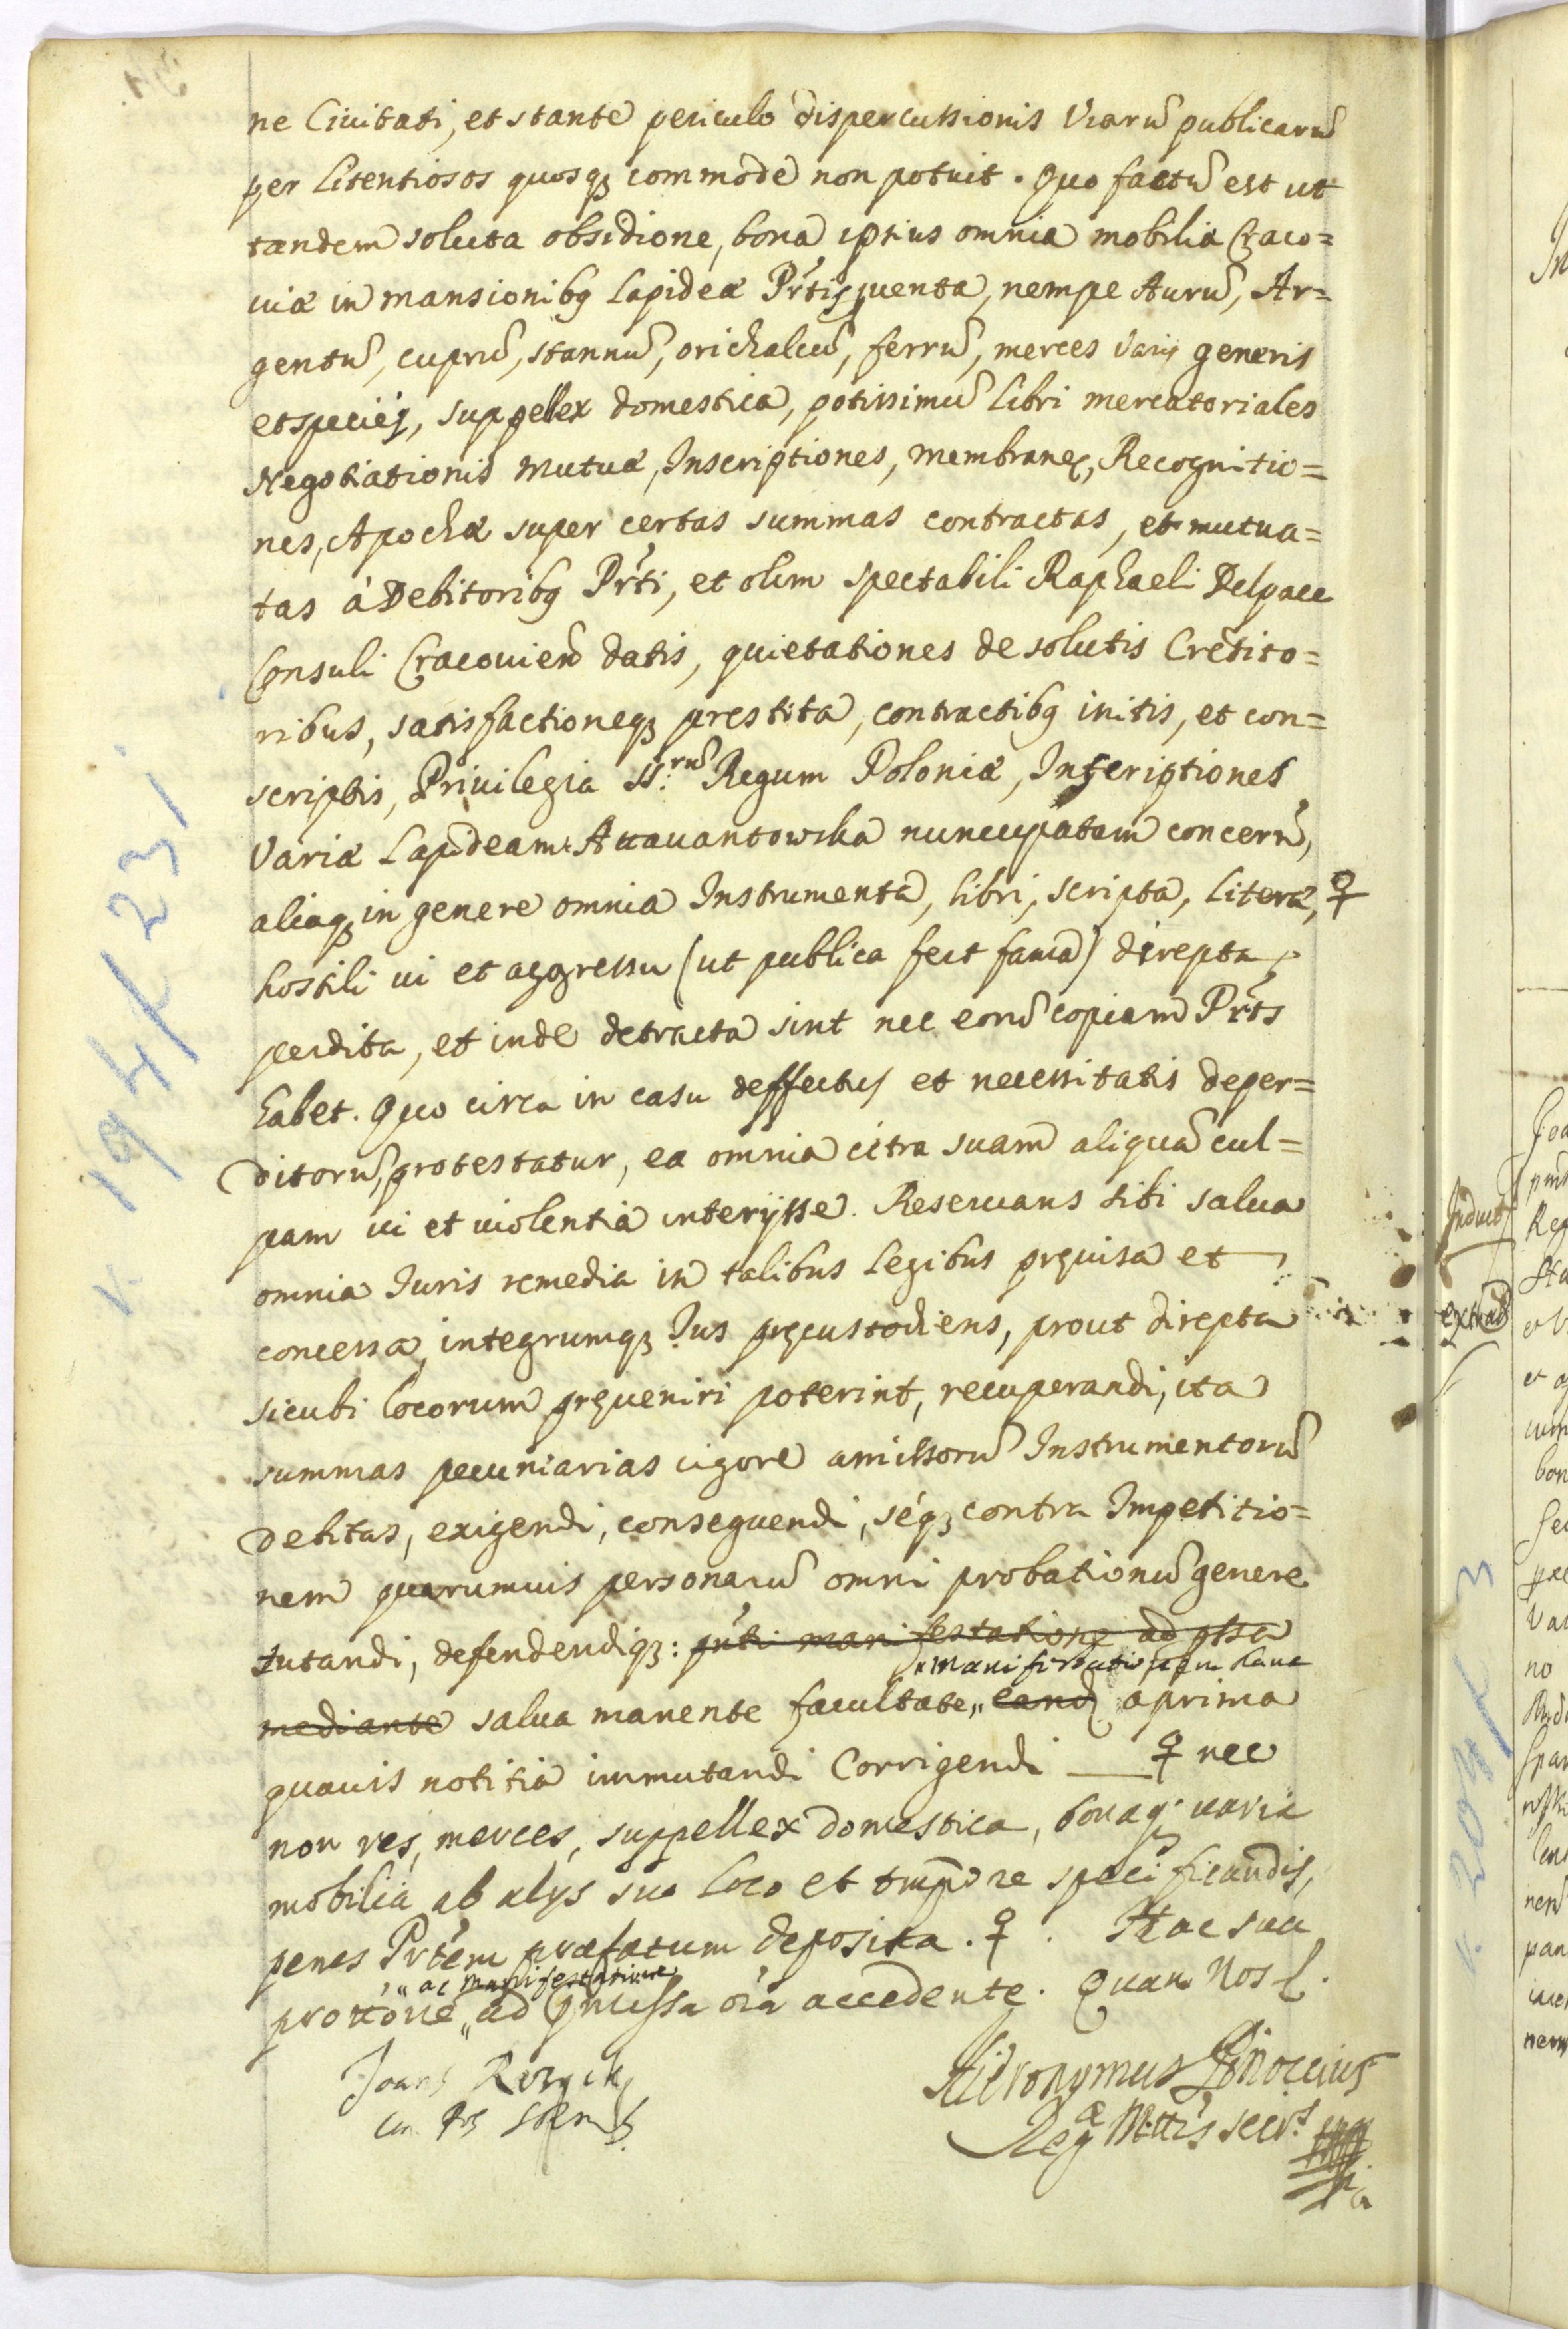 ne Ciuitati, et stante periculo dispercussionis Viarū publicarū
per licentiosos quosqȝ commode non potuit. Quo factū est ut
tandem soluta obsidione, bona ipsius omnia mobilia Craco=
uiæ in mansionibȝ Lapideæ Prtis inuenta, nempe Aurū, Ar=
gentū, cuprū, stannū, orichalcū, ferrū, merces varij generis
et speciej, suppellex domestica, potissimū libri mercatoriales
Negotiationis mutuæ, Inscriptiones, membranę, Recognitio=
nes, Apochæ super certas summas contractas, et mutua=
tas à Debitoribȝ Prti, et olim spectabili Raphaeli Delpace
Consuli Cracouień datis, quietationes de solutis Credito=
ribus, satisfactioneqȝ prestita, contractibȝ initis, et con=
scriptis, Priuilegia SS.rū Regum Poloniæ, Inscriptiones
Variæ Lapideam Attauantowska nuncupatam concerń,
aliaqȝ in genere omnia Instrumenta, libri, scripta, literæ, ♀
hostili ui et aggressu (ut publica fert fama) direpta,
perdita, et inde detracta sint nec eorū copiam Prts
habet. Quo circa in casu deffectus et necessitatis deper=
ditorū, protestatur, ea omnia citra suam aliquā cul=
pam ui et uiolentia interijsse. Reseruans sibi salua
omnia Iuris remedia in talibus legibus pręuisa et
concessa, integrumqȝ Ius pręcustodiens, prout direpta
sicubi locorum pręueniri poterint, recuperandi, ita
summas pecuniarias uigore amissorū Instrumentorū
debitas, exigendi, consequendi, séqȝ contra Impetitio=
nem quarumuis personarū omni probationū genere
tutandi, defendendiqȝ: pnti manifestatione ad pssa
manifestationem hanc
mediante salua manente facultate, eandę a prima
quauis notitia immutandi Corrigendi ___ ♀ nec
non res, merces, suppellex domestica, bonaqȝ varia
mobilia ab alys suo loco et tmpore specificandis,
penes Prtem præfatum deposita. ♀. Hac sua
ac manifestatione
prottone ad pmissa oīa accedente. Quam Nos
Hieronymus Pinoccius
Reg æ Mttis secrs
K 194/23
Induct
extrad